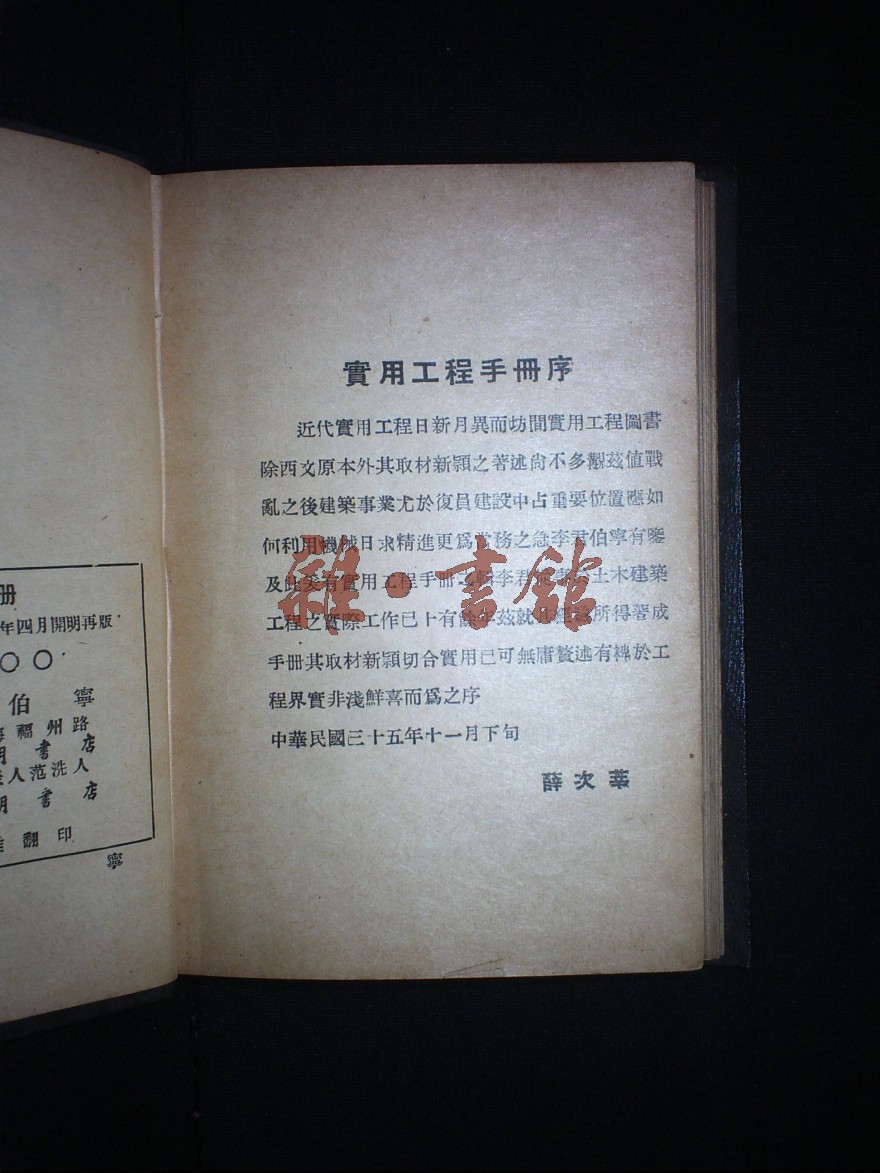 實用工程手冊序
近代實用工程日新月異而坊間實用工程圖書
除西文原本外其取材新穎之著述尙不多覯茲値戰
亂之後建築事業尤於復員建設中占重要位置應如
何利用機械日求精進更爲當務之急李君伯寧有鑒
及此爰有實用工程手冊之輯李君 土木建築
工程之實際工作已十有餘年茲就 所得著成
手冊其取材新穎切合實用已可無庸贅述有裨於工
程界實非淺鮮喜而爲之序
中華民國三十五年十一月下旬
薛次莘
雜·書館
册
年四月開明再版
〇〇
伯寧
福州路
書店
人范洗人
書店
翻印
寧